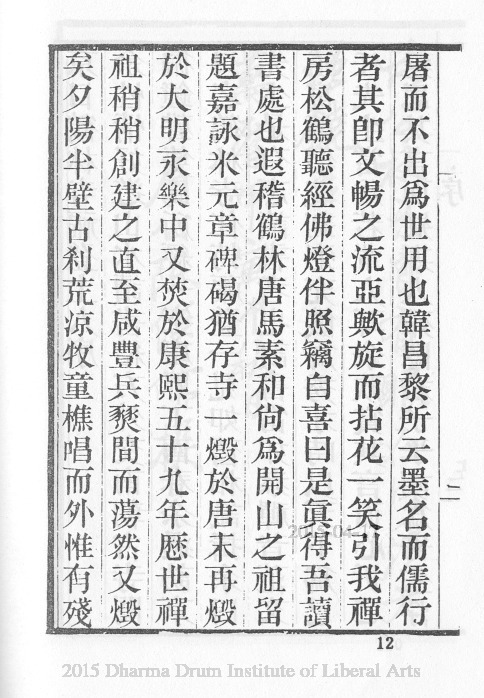 屠而不出爲世用也韓昌黎所云墨名而儒行
者其卽文暢之流亞歟旋而拈花一笑引我禪
房松鶴聽經佛燈伴照竊自喜曰是眞得吾讀
書處也遐稽鶴林唐馬素和尙爲開山之祖留
題嘉詠米元章碑碣猶存寺一燬於唐末再燬
於大明永樂中又焚於康熙五十九年歷世禪
祖稍稍創建之直至咸豐兵燹間而蕩然又燬
矣夕陽半壁古刹荒凉牧童樵唱而外惟有殘
二
12
2015 Dharma Drum Institute of Liberal Arts